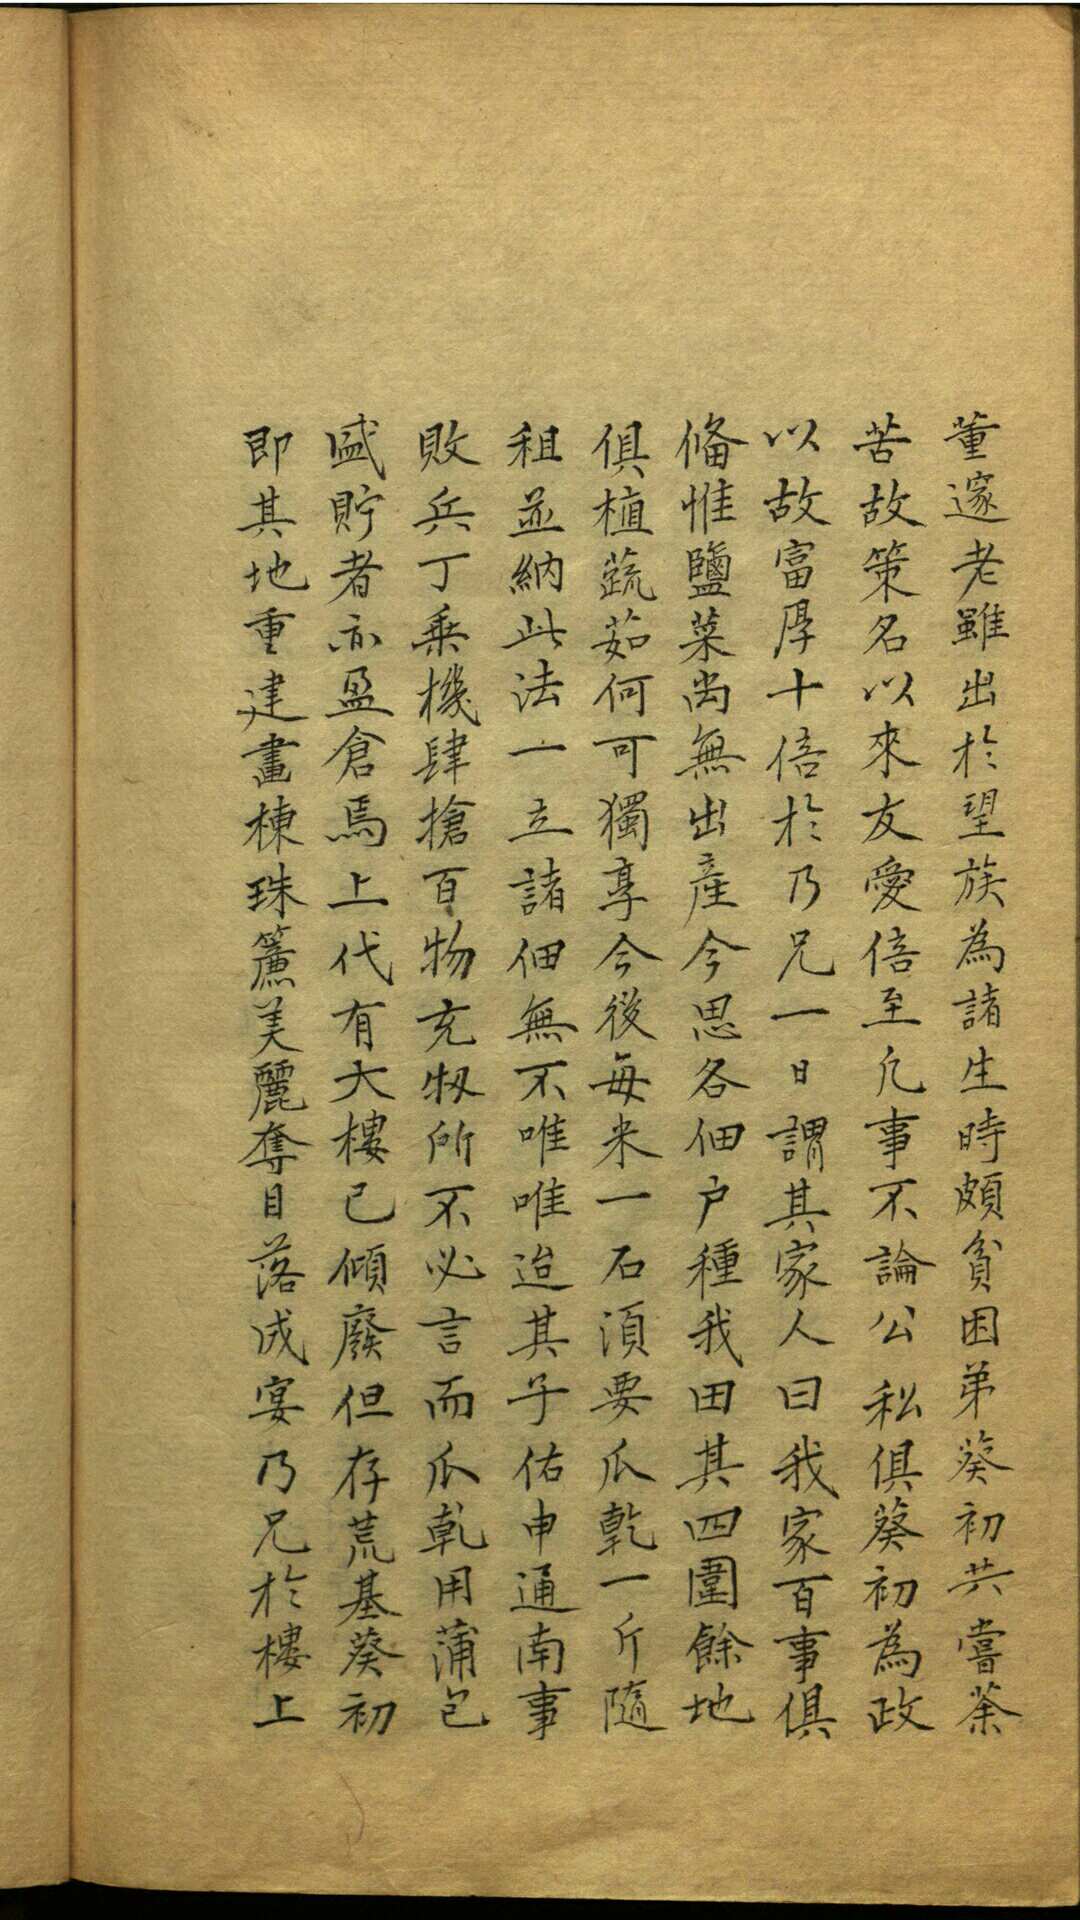 董邃老雖出於望族為諸生時頗貧困弟葵初共嘗荼
苦故策名以來友愛倍至凡事不論公私俱葵初為政
以故富厚十倍於乃兄一日謂其家人曰我家百事俱
俻惟鹽菜尚無出產今思各佃户種我田其四圍餘地
俱植蔬茹何可獨享今後每米一石須要瓜乾一斤隨
租並納此法一立諸佃無不唯唯迨其子佑申通南事
敗兵丁乗機肆搶百物充牣所不必言而瓜乾用蒲包
盛貯者亦盈倉焉上代有大樓已傾廢但存荒基葵初
即其地重建畫棟珠簾美麗奪目落成宴乃兄於樓上